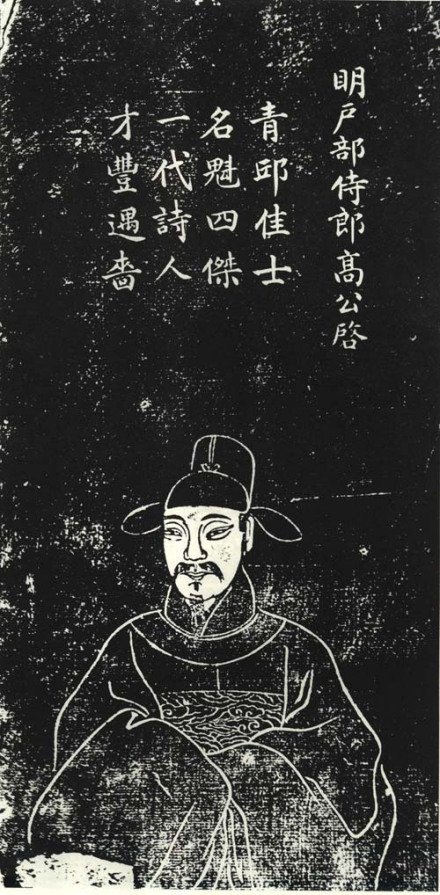 明戸部侍郎高公啓
青邱佳士
名魁四傑
一代詩人
才豐遇嗇